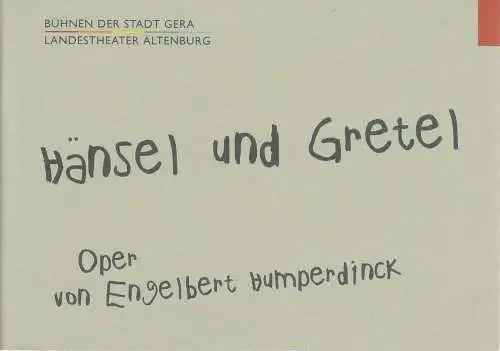 BÜHNEN DER STADT GERA
LANDESTHEATER ALTENBURG
Hänsel und Gretel
Oper
von Engelbert Humperdinck